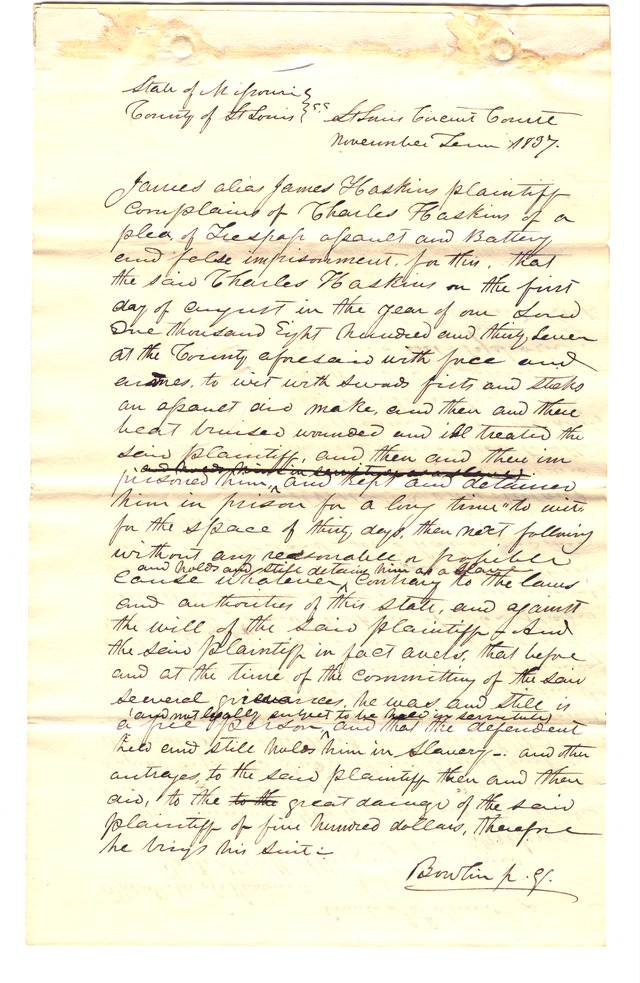 State of Missouri }
County of St Louis } ss St Louis Circuit Court
November Term 1837.
James alias James Haskins plaintiff
complains of Charles Haskins of a
plea of Trespass assault and Battery
and false imprisonment, for this, that
the said Charles Haskins on the first
day of august in the year of our Lord
One thousand Eight hundred and thirty seven
at the County aforesaid with force and
armes, to wit with swords fists and sticks
an assault did make, and then and there
beat bruised wounded and ill treated the
said plaintiff, and then and there im
and holds him in servitude as a slave
prisoned him, and kept and detained
him in prison for a long time "to wit"
for the space of thirty days, then next following
without any reasonable or probible
and holds and still detains him as a slave
cause whatever, ^ contrary to the laws
and authorities of this state, and against
the will of the said plaintiff - And
the said plaintiff in fact avers, that before
and at the time of the committing of the said
several grievances, he was and still is
and not legally subject to be held in servitude
a free person, ^ and that the defendent
held and still holds him in slavery - and other
outrages, to the said plaintiff then and there
did, to the to the great damage of the said
plaintiff of five hundred dollars, therefore
he brings his suit :-
Bowlin p. q.